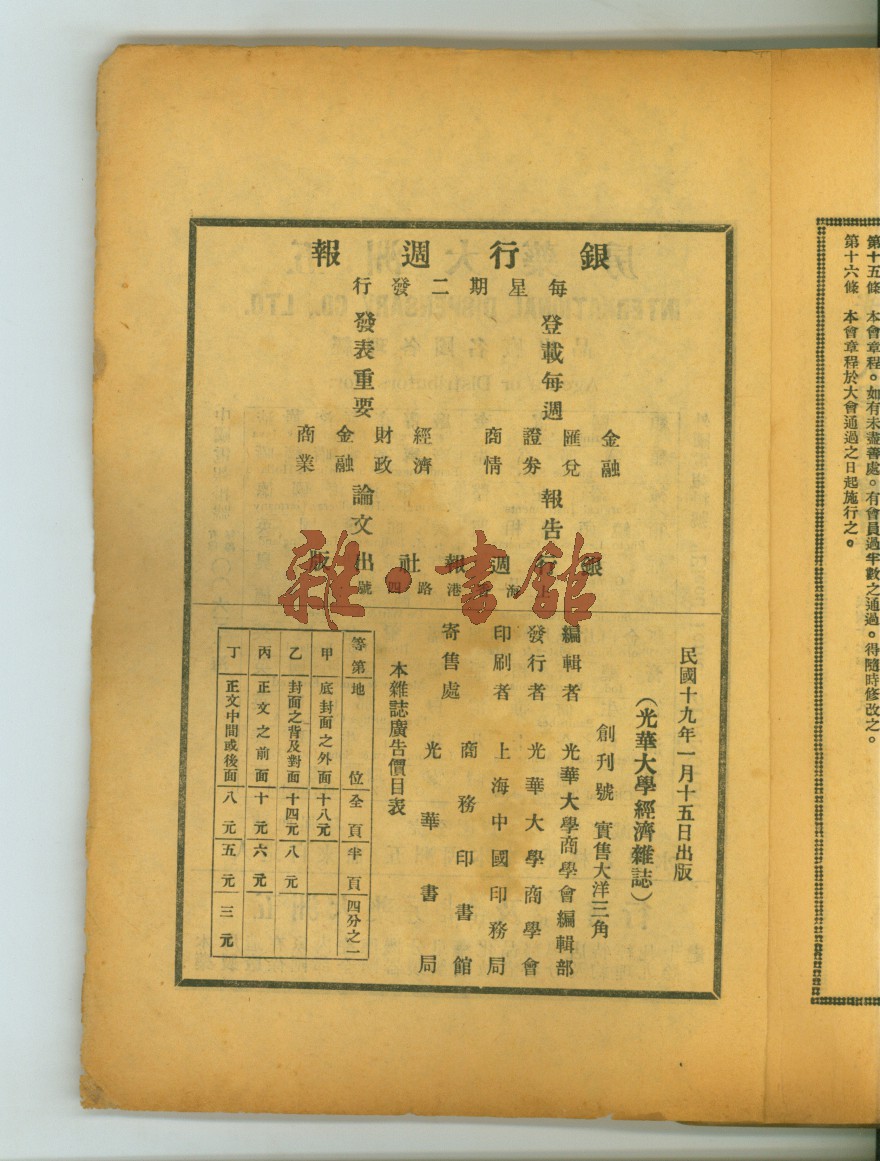 第十五條　本會章程。如有未盡善處。有會員過半數之通過。得隨時修改之。
第十六條　本會章程於大會通過之日起施行之。
銀行週報
每星期二發行
登載每週
金融
匯兌
證券
商情
報告
發表重要
經濟
財政
金融
商業
論文
銀行週報社出版
上海香港路四號
民國十九年一月十五日出版
（光華大學經濟雜誌）
創刊號　實售大洋三角
編輯者　光華大學商學會編輯部
發行者　光華大學商學會
印刷者　上海中國印務局
寄售處　商務印書館
光華書局
本雜誌廣告價目表
等第　地位　全頁　半頁　四分之一
甲　底封面之外面　十八元
乙　封面之背及對面　十四元　八元
丙　正文之前面　十元　六元
丁　正文中間或後面　八元　五元　三元
雜·書館